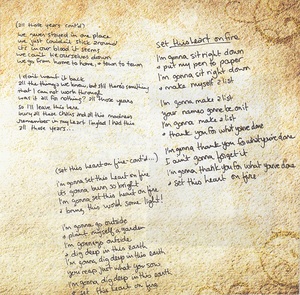 (all those years cont'd)
we never stayed in one place
we just couldn't stick around
it's in our blood it seems
we can't tie ourselves down
we go from home to home, + town to town
I don't want it back
all the things we knew, but still there's something
that I can not work through
was it all for nothing? all those years
so I'll leave this here
bury all these chains and all this madness
remember every heart & I had this
all those years...
set this heart on fire
I'm gonna sit right down
+ put my pen to paper
I'm gonna sit right down
+ make myself a list
I'm gonna make a list
your names gonna be on it
I'm gonna make a list
+ thank you for what you've done
I'm gonna thank you for what you've done
I ain't gonna forget it
I'm gonna thank you for what you've done
+ set this heart on fire
(set this heart on fire - cont'd...)
I'm gonna set this heart on fire
it's gonna burn so bright
I'm gonna set this heart on fire
+ bring this world some light!
I'm gonna go outside
+ plant myself a garden
I'm gonna go outside
+ dig deep in this earth
I'm gonna dig deep in this earth
you reap just what you sow
I'm gonna dig deep in this earth
+ set this heart on fire